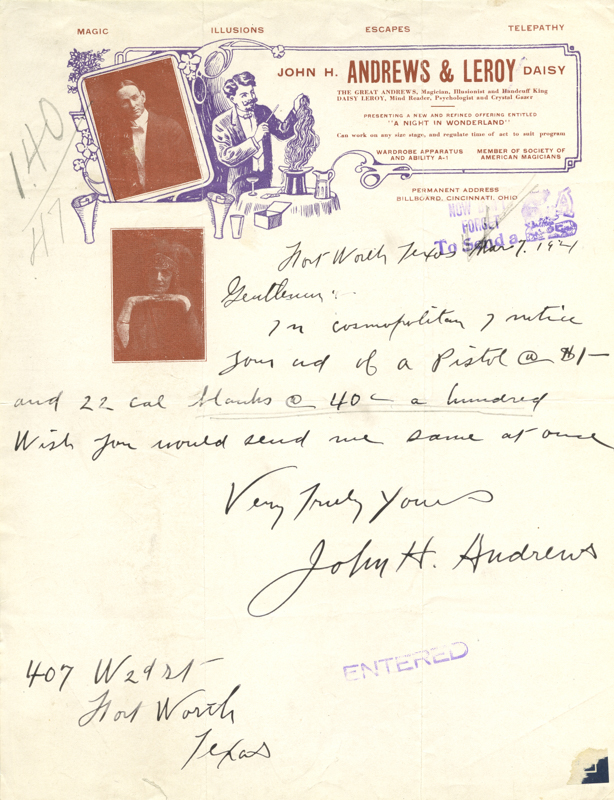 MAGIC ILLUSIONS ESCAPES TELEPATHY
JOHN H. ANDREWS & LEROY DAISY
THE GREAT ANDREWS, Magician, Illusionist and Handcuff King
DAISY LEROY, Mind Reader, Psychologist and Crystal Gazer
PRESENTING A NEW AND REFINED OFFERING ENTITLED
"A NIGHT IN WONDERLAND"
Can work on any size stage, and regulate time of act to suit program
WARDROBE APPARATUS
AND ABILITY A-1
MEMBER OF SOCIETY OF
AMERICAN MAGICIANS
PERMANENT ADDRESS
BILLBOARD, CINCINNATI, OHIO
1.40
FORGET
To Send a
Fort Worth Texas Mar 7. 1921
Gentlemen:
In cosmopolitan I notice
your ad of a Pistol @ $1-
and 22 cal blanks @ 40c a hundred
Wish you would send me same at once
Very Truly Yours
John H. Andrews
407 W 2d st
Fort Worth
Texas
ENTERED